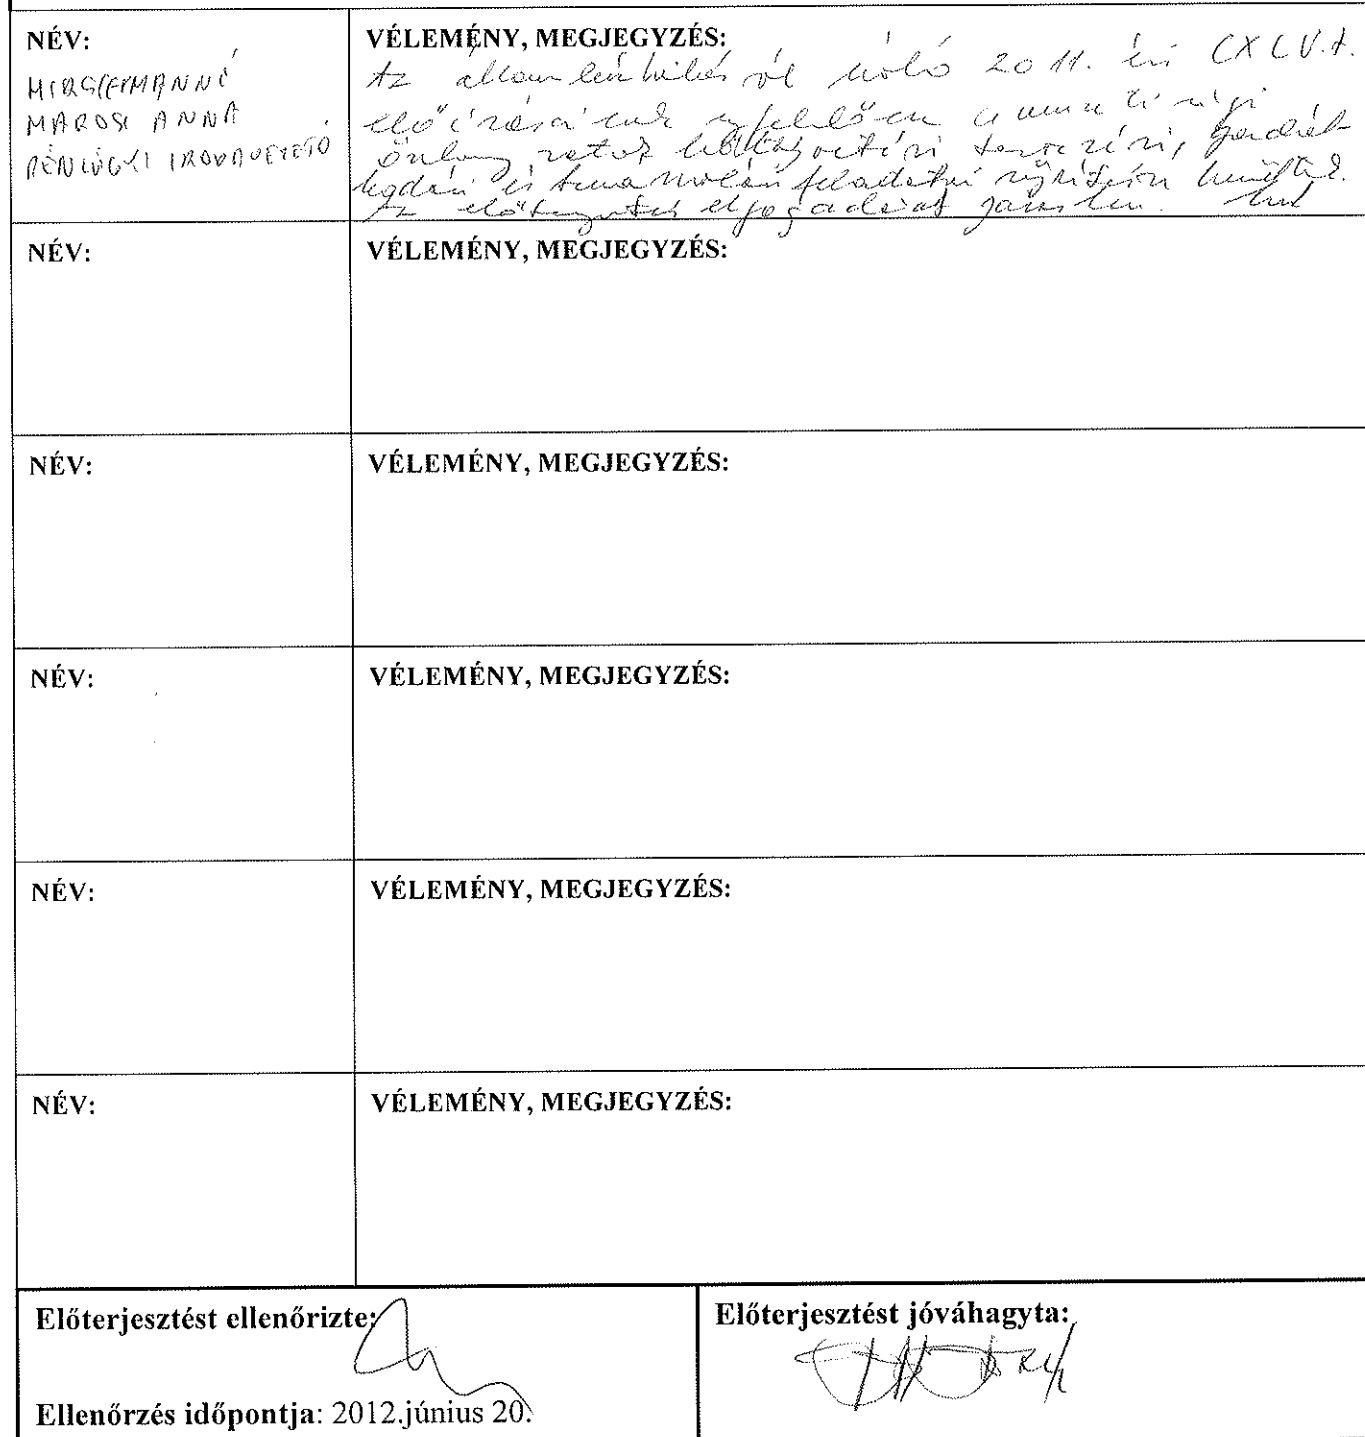 NÉV:
MAROSI ANNA
PÉNZÜGYI IRODAVEZETŐ
VÉLEMÉNY, MEGJEGYZÉS:
Az államháztartásról szóló 2011. évi CXCV.t.
előírásainak megfelelően a nemzetiségi
önkormányzatok költségvetési tervezési, gazdál-
kodási és beszámolási feladatai
Az előterjesztés elfogadását javaslom.
NÉV:
VÉLEMÉNY, MEGJEGYZÉS:
NÉV:
VÉLEMÉNY, MEGJEGYZÉS:
NÉV:
VÉLEMÉNY, MEGJEGYZÉS:
NÉV:
VÉLEMÉNY, MEGJEGYZÉS:
NÉV:
VÉLEMÉNY, MEGJEGYZÉS:
Előterjesztést ellenőrizte:
Ellenőrzés időpontja: 2012.június 20.
Előterjesztést jóváhagyta: